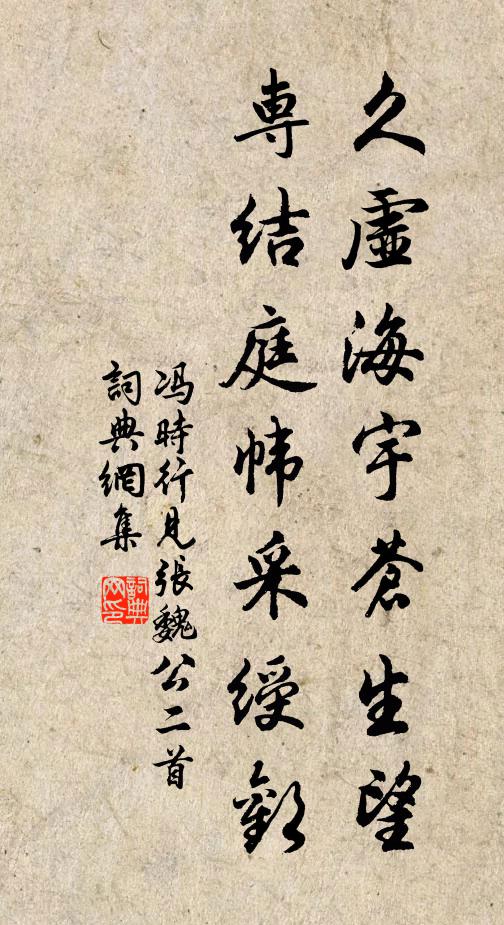 久虛海宇蒼生望
専結庭幃采綬歡
冯時行見張魏公二首
詞典網集
詞典
网印